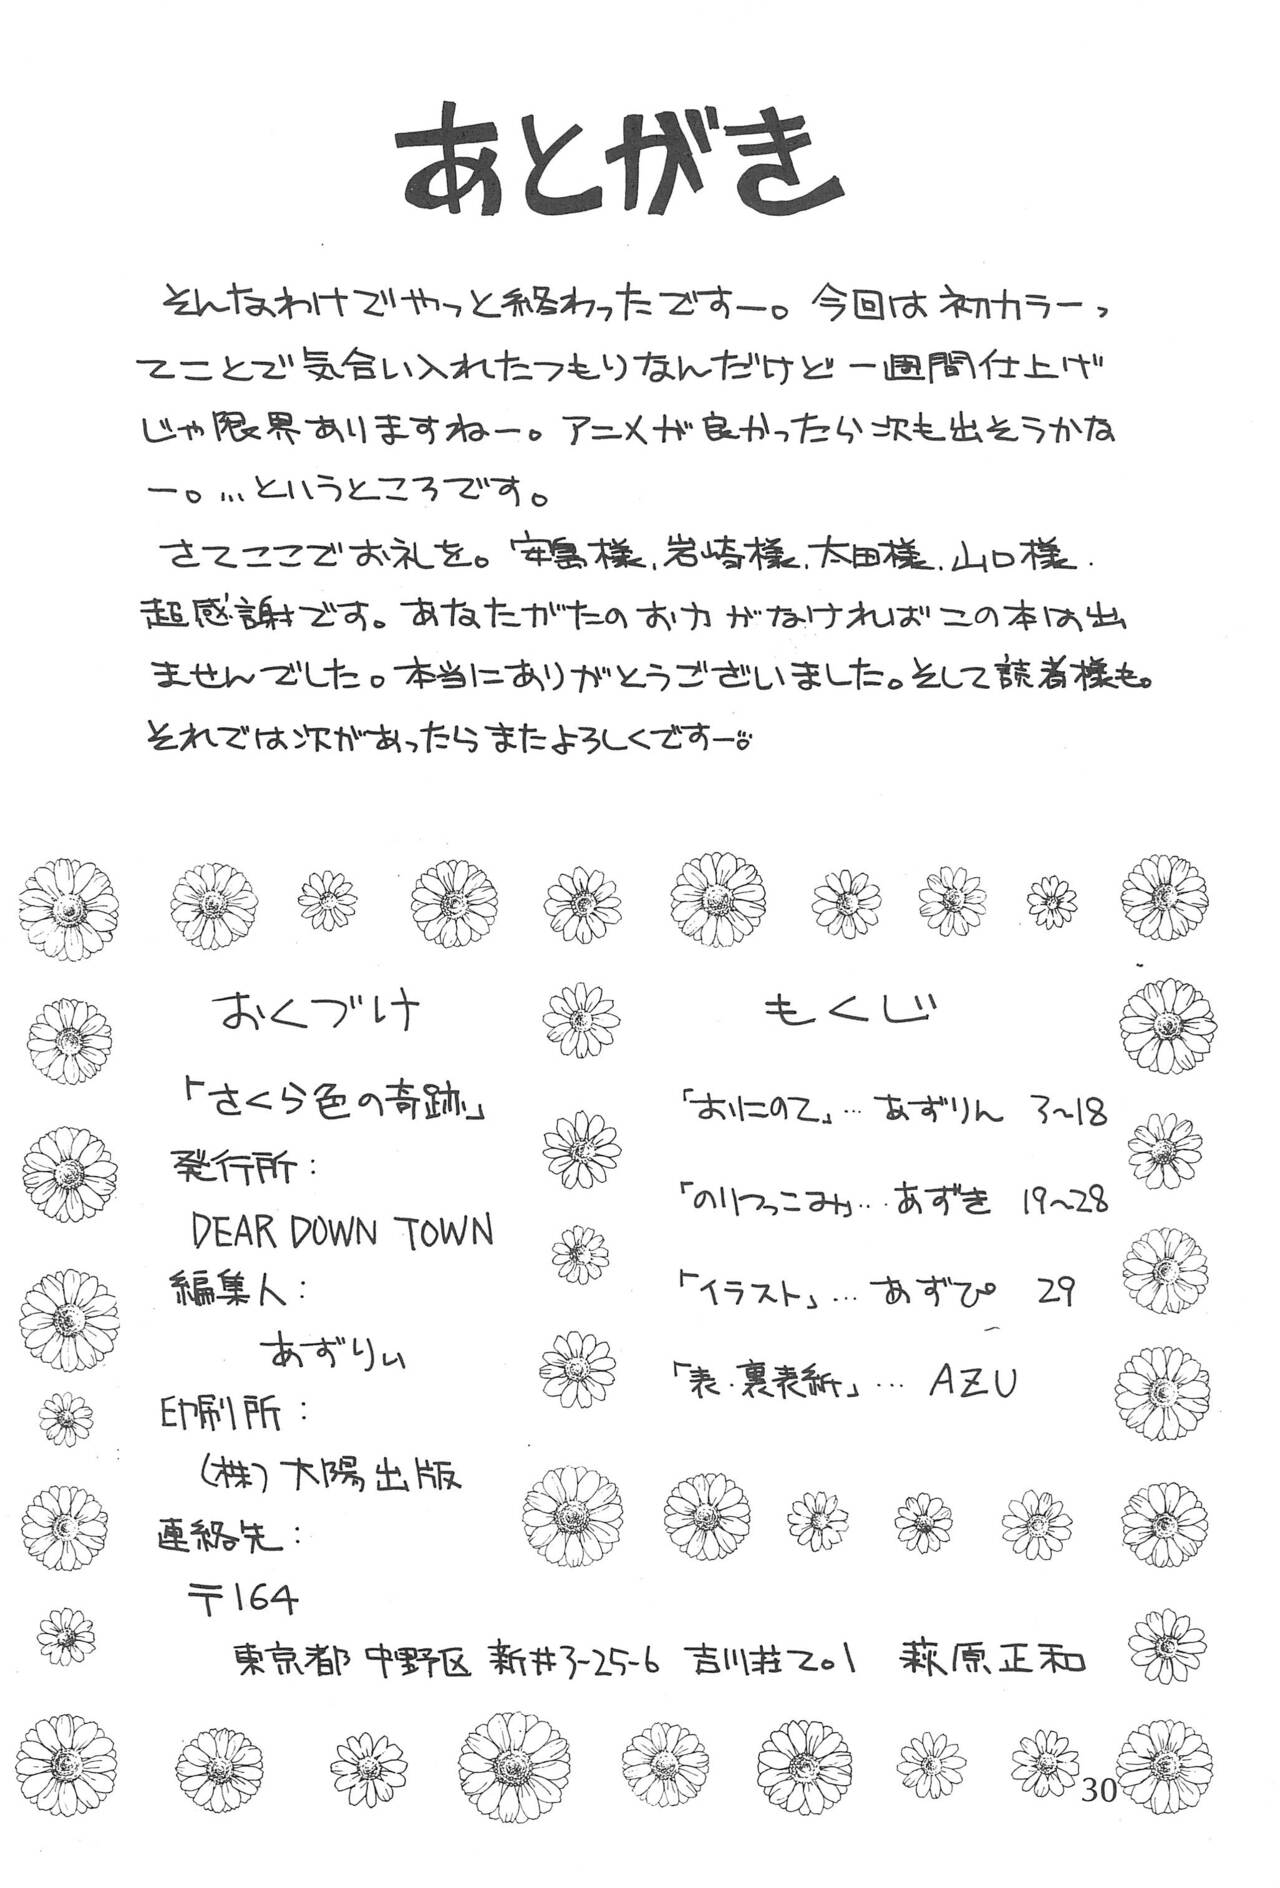 あとがき
そんなわけでやっと終わったですー。今回は初カラーっ
てことで気合い入れたつもりなんだけど一週間仕上げ
じゃ限界ありますねー。アニメが良かったら次も出そうかな
ー。…というところです。
さてここでお礼を。安島様、岩崎様、太田様、山口様.
超感謝です。あなたがたのお力がなければこの本は出
ませんでした。本当にありがとうございました。そして読者様も。
それでは次があったらまたよろしくですー。
おくづけ
「さくら色の奇跡」
発行所:
DEAR DOWN TOWN
編集人:
あずりぃ
印刷所:
(株)大陽出版
連絡先:
〒164
東京都中野区新井3-25-6 吉川荘No.1 萩原正和
もくじ
「おにのて」…あずりん 3~18
「のりつっこみ」…あずき 19~28
「イラスト」…あずぴ 29
「表・裏表紙」…AZU
30